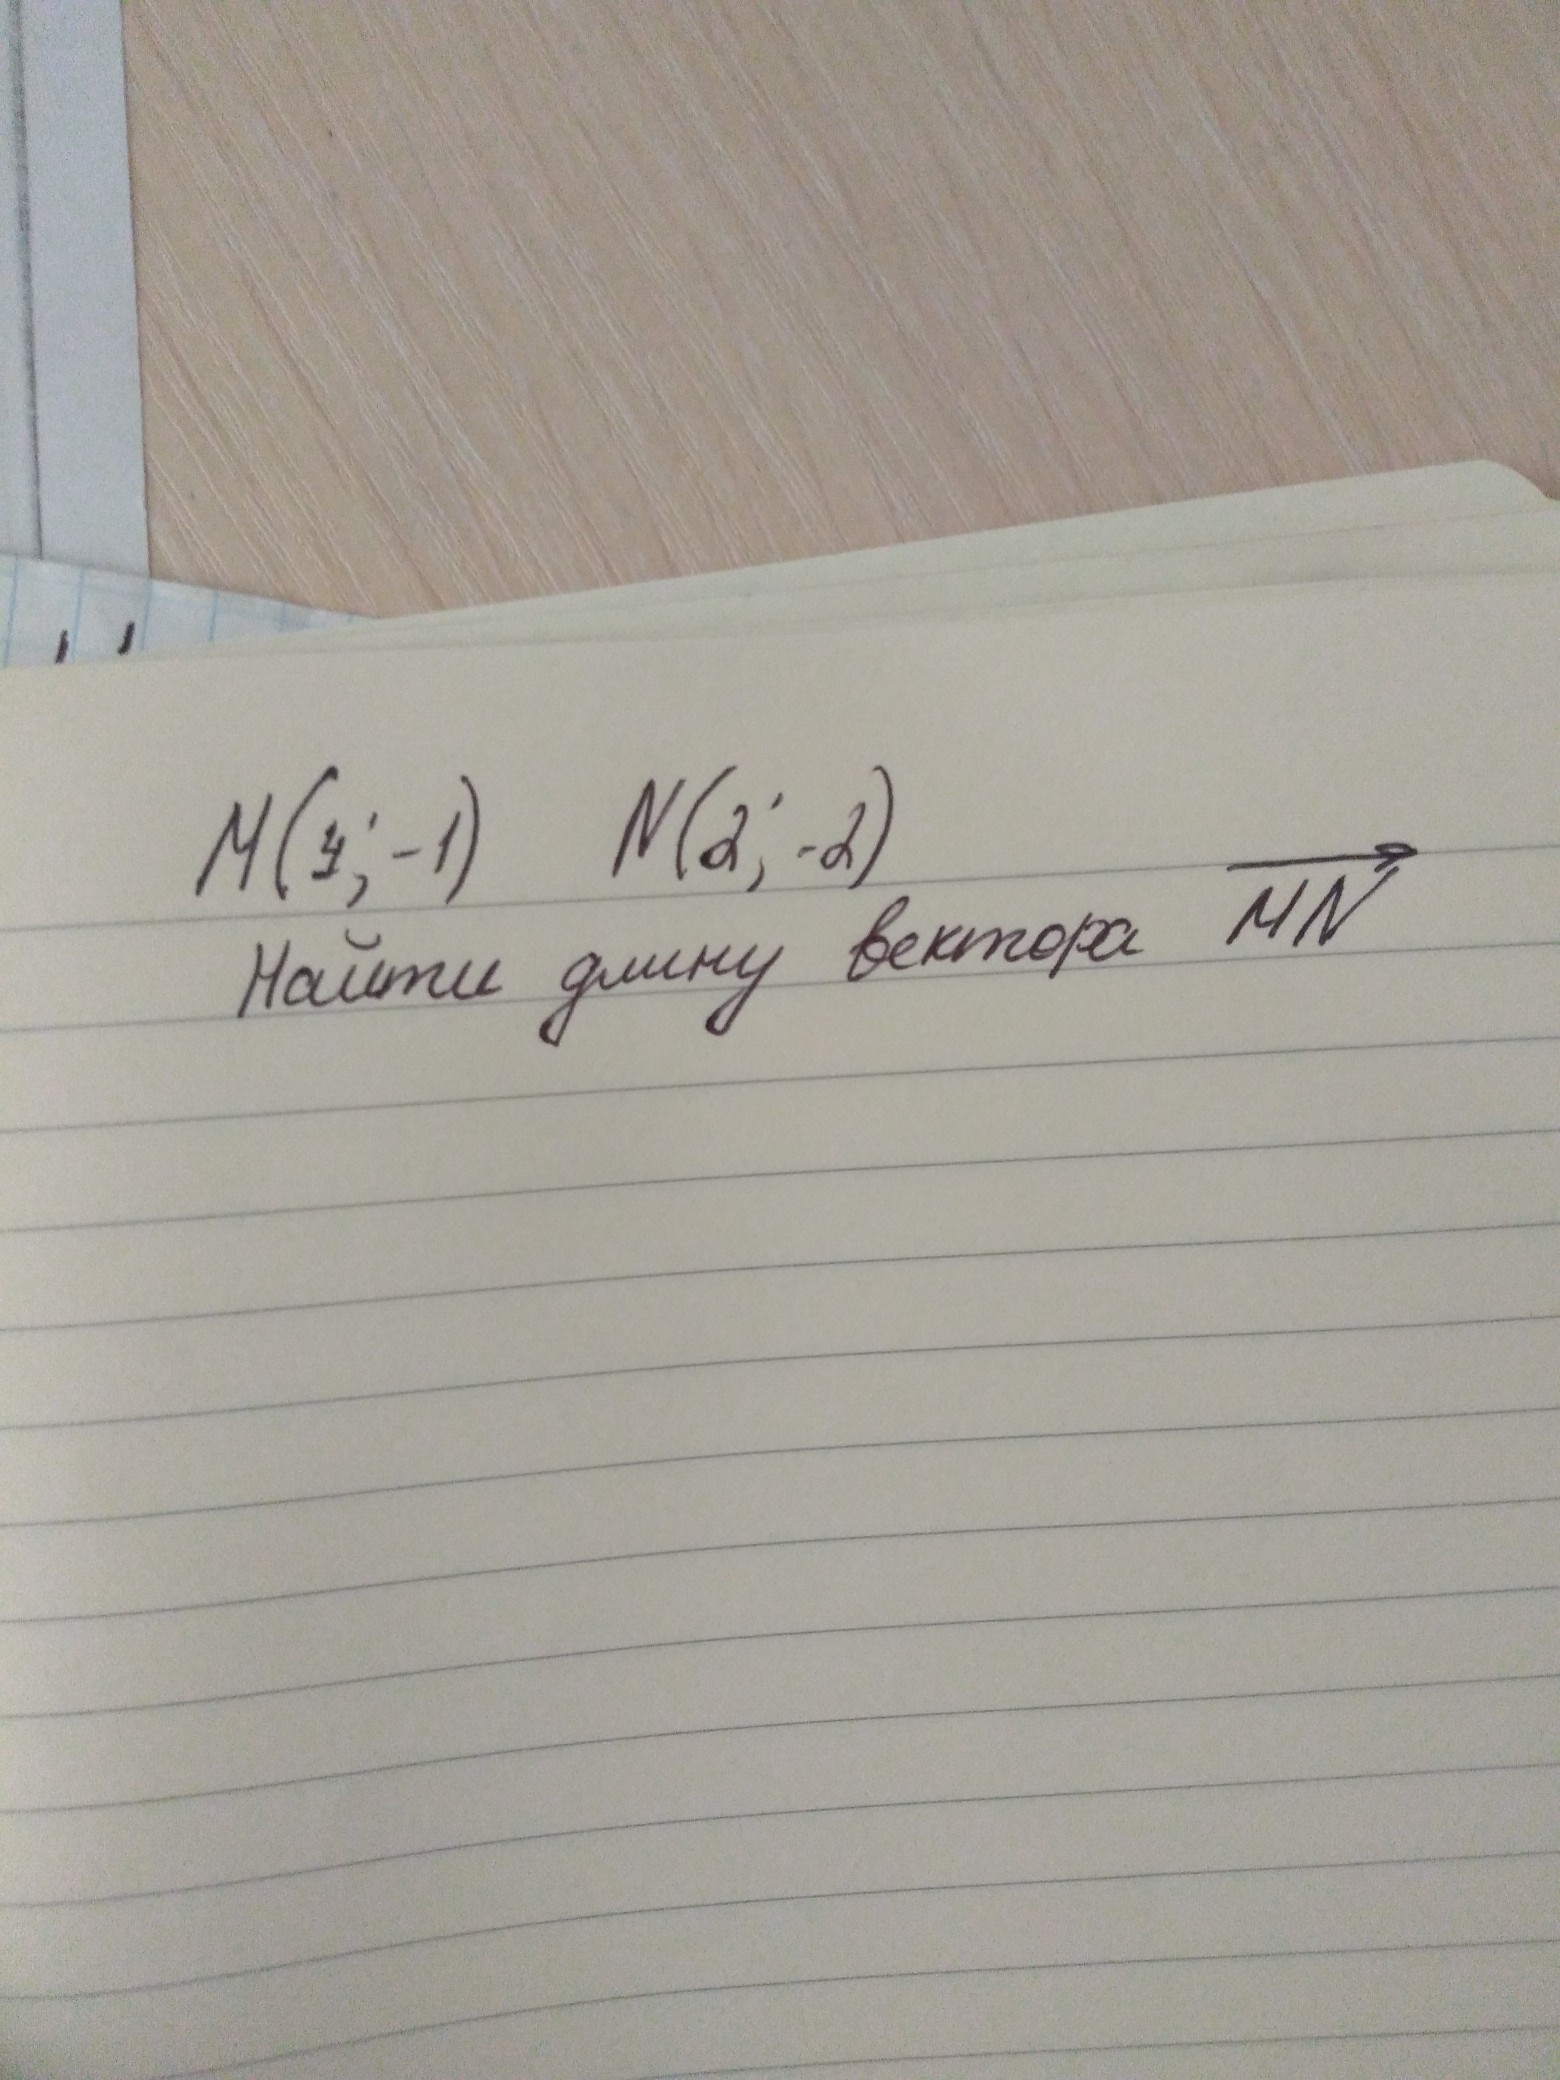 M(4;-1) N(2;-2)
Найти длину вектора MN